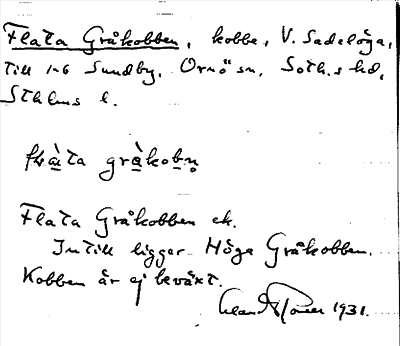 Flata Gråkobben, kobbe, V. Sadelöga,
till 1-6 Sundby, Ornö sn, Soth.s hd,
Sthlms l.
grà̀kob̥n̥
Flata Gråkobben ek.
Intill ligger Höga Gråkobben.
Kobben är ej beväxt.
1931.